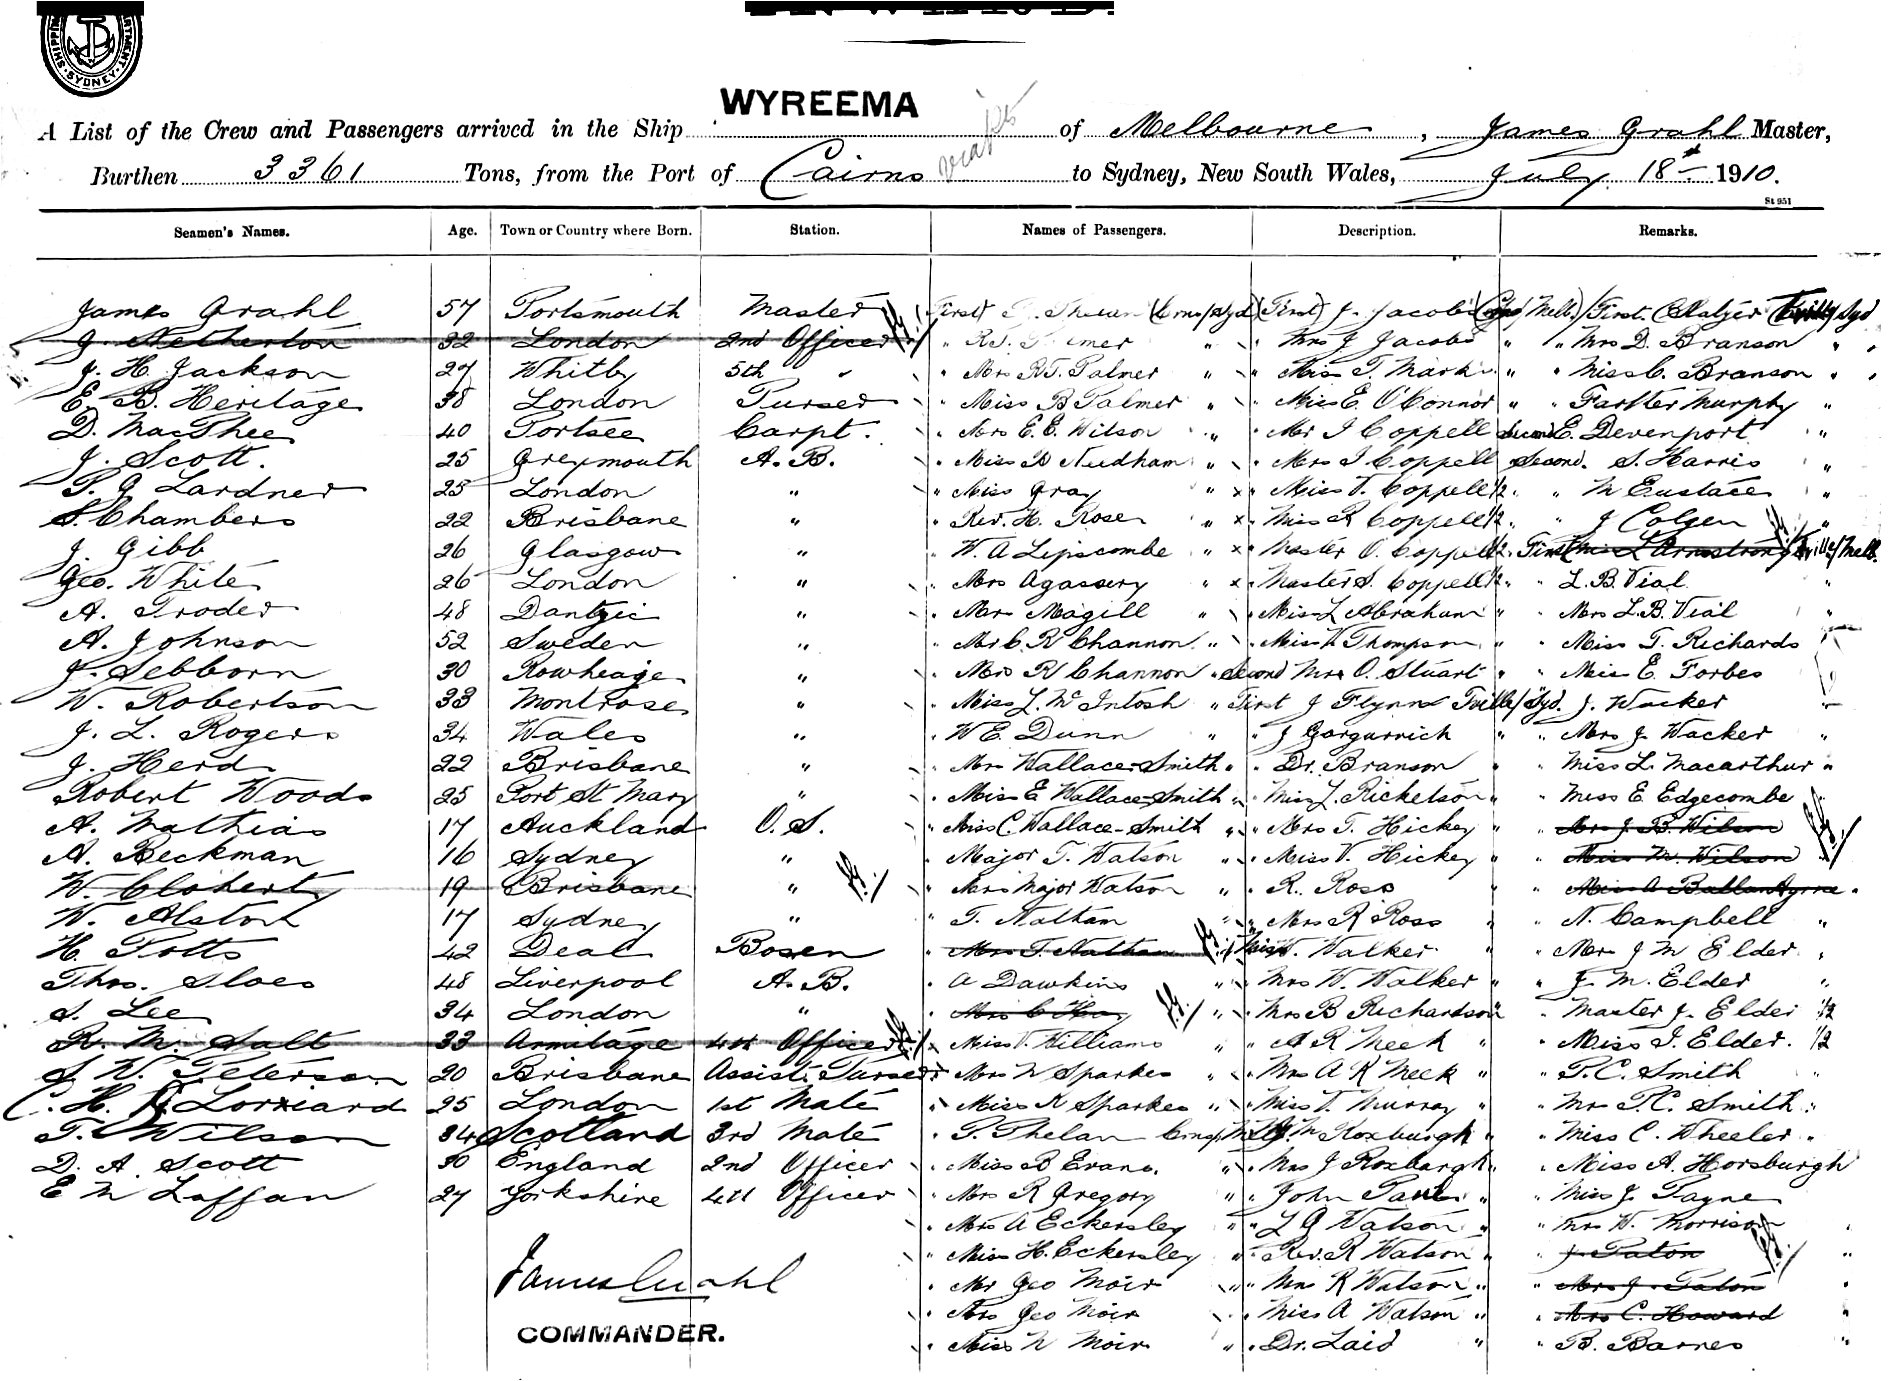 SHIPPING DEPARTMENT SYDNEY
WYREEMA
A List of the Crew and Passengers arrived in the Ship of Melbourne, James Grahl Master,
Burthen 3361 Tons, from the Port of Cairns to Sydney, New South Wales, July 18th 1910.
St 951
Seamen's Names. Age. Town or Country where Born. Station. Names of Passengers. Description. Remarks.
James Grahl 57 Portsmouth Master (First) (First) J. Jacobs First. Syd
J. Netherton 32 London 2nd Officer " " " Mrs J Jacobs " " Mrs D. Branson " "
J. H. Jackson 27 Whitby 5th " " Mrs R.T. Palmer " " Miss T. Mark " " Miss C. Branson " "
E. B. Heritage 38 London Purser " Miss B Palmer " " Miss E. O'Connor " " Farther Murphy "
D. MacPhee 40 Portsee Carpt. " Mrs E. E. Wilson " " Mr I Coppell Second E. Devenport "
J. Scott. 25 Greymouth A. B. " Miss Needham " " Mrs I Coppell Second. S. Harris "
P. G Lardner 25 London " " Miss Gray " x " Miss V. Coppell 1/2 " " M Eustace "
S. Chambers 22 Brisbane " " Rev. H. Rosen " x " Miss R Coppell 1/2 " " J Colgen "
J. Gibb 26 Glasgow " " W. A Lipscombe " x " Master O. Coppell 1/2 First Miss L Armstrong Tville/Melb.
Geo. White 26 London " " Mrs Agassery " x " Master S. Coppell 1/2 " L. B. Vial "
A. Troder 48 Dantzic " " Mrs Magill " " Miss L Abraham " " Mrs L. B. Vial "
A. Johnson 52 Sweden " " Mr C. R Channon " " Miss V. Thompson " " Miss T. Richards "
J. Sebborn 30 Rowheage " " Mrs R Channon " Second Mrs O. Stuart " " Miss E Forbes
W. Robertson 33 Montrose " " Miss L. McIntosh " First J Flynn Tville/Syd. J. Wacker "
J. L. Rogers 34 Wales " " W E. Dunn " " J Gargurrich " " Mrs J. Wacker "
J. Herd 22 Brisbane " " Mrs Wallace-Smith " " Dr. Branson " " Miss L. Macarthur "
Robert Woods 25 Port St Mary " " Miss E Wallace-Smith " " Miss L. Ricketson " " Miss E Edgecombe
A. Mathias 17 Auckland O. S. " Miss C. Wallace-Smith " " Mrs T. Hickey " " Mr J. B. Wilson
A. Beckman 16 Sydney " " Major T. Watson " " Miss V. Hickey " " Miss M. Wilson
W. Cloherty 19 Brisbane " " Mrs Major Watson " " R. Ross " " Miss A Ballantyne "
W. Alston 17 Sydney " " T. Nathan " " Mrs R Ross " " N. Campbell "
H. Potts 42 Deal Bosen " Mrs T. Nathan W. Walker " " Mr J M Elder "
Thos. Sloes 48 Liverpool A. B. " A Dawkins " " Mrs W. Walker " " J. M. Elder "
S. Lee 34 London " " Mrs C Hay " " Mrs B Richardson " " Master J. Elder 1/2
R. M. Salt 33 Armitage 4th Officer " Miss V. Williams " " A R Meek " " Miss I. Elder. 1/2
S. W. Peterson 20 Brisbane Assist. Purser " Mrs W Sparkes " " Mrs A R Meek " " P. C. Smith "
C. H. Lorriard 25 London 1st Mate " Miss K Sparkes " " Miss T. Murray " " Mrs P. C. Smith "
T. Wilson 34 Scotland 3rd Mate " P. Phelan M Roxburgh " " Miss C. Wheeler "
D. A. Scott 30 England 2nd Officer " Miss B Evans " " Mrs J Roxburgh " " Miss A. Horsburgh
E M Laffan 27 Yorkshire 4th Officer " Mrs R Gregory " " John Paul " " Miss J. Payne
" Mrs A Eckersley " " L G Watson " " Mrs W. Morrison "
" Miss H. Eckersley " " Rev. R Watson " " J. Paton "
James Grahl " Mr Geo Moir " " Mrs R Watson " " Mrs J. Paton "
" Mrs Geo Moir " " Miss A Watson " " Mrs C. Howard "
COMMANDER. " Miss N Moir " " Dr. Laid " " B. Barnes "